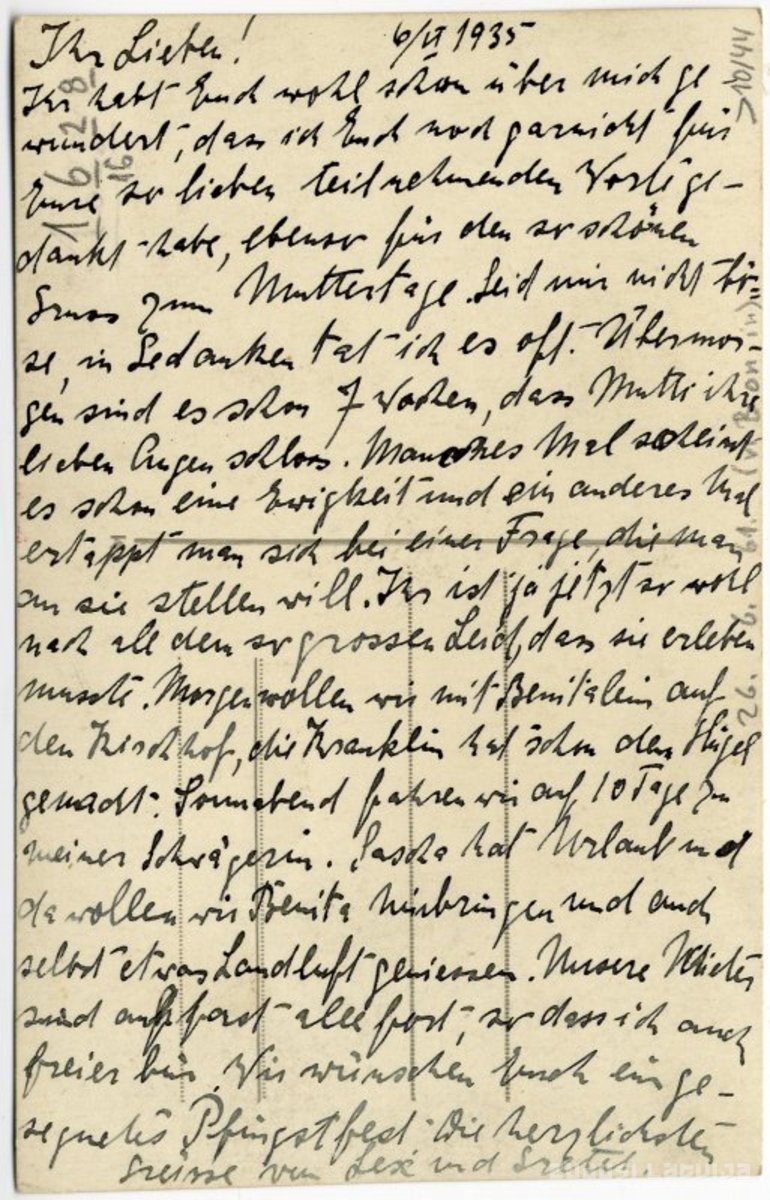 Ihr Lieben! 6/VI 1935
Ihr habt Euch wohl schon über mich ge
wundert, dass ich Euch noch garnicht für
Eure so lieben teilnehmenden Worte ge-
dankt habe, ebenso für den so schönen
Gruss zum Muttertage. Seid mir nicht bö-
se, in Gedanken tat ich es oft. Übermor-
gen sind es schon 7 Wochen, dass Mutti ihre
lieben Augen schloss. Manches Mal scheint
es schon eine Ewigkeit und ein anderes Mal
ertappt man sich bei einer Frage, die man
an sie stellen will. Ihr ist ja jetzt so wohl
nach all dem so grossen Leid, dass sie erleben
musste. Morgen wollen wir mit Benitalein auf
den Kirchhof, die Kranklin hat schon den Hügel
gemacht. Sonnabend fahren wir auf 10 Tage zu
meiner Schwägerin. Sascha hat Urlaub und
da wollen wir Benita hinbringen und auch
selbst etwas Landluft geniessen. Unsere Mieter
sind auch fast alle fort, so dass ich auch
freier bin. Wir wünschen Euch ein ge-
segnetes Pfingstfest. Die herzlichsten
Grüsse von und Gretel.
1628
16
26. 6. 61.